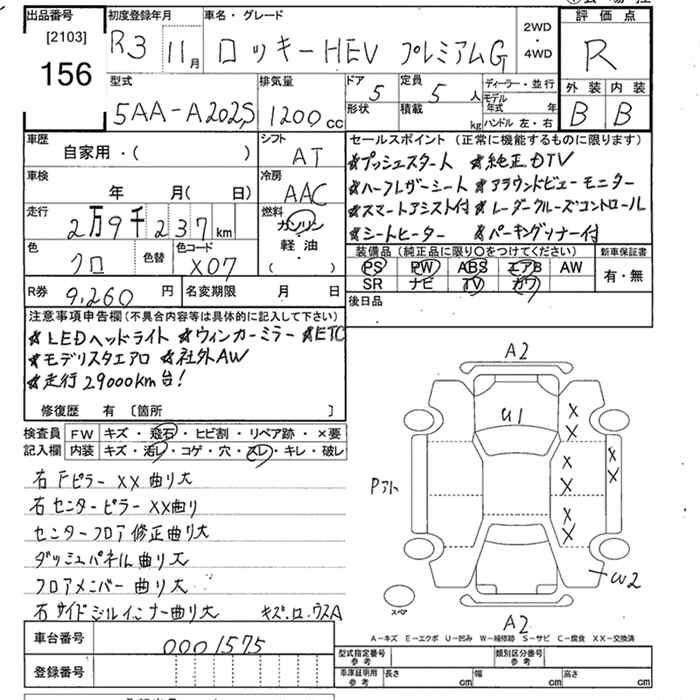 出品番号 初度登録年月 車名・グレード 評価点
[2103]
156
R3 11月 ロッキーHEV プレミアムG 2WD・4WD R
型式 排気量 ドア 定員 ディーラー・並行 外装 内装
5AA-A202S 1200cc 5 5人 モデル年式 年 B B
形状 積載 kg ハンドル 左・右
車歴 シフト セールスポイント (正常に機能するものに限ります)
自家用・( ) AT ★プッシュスタート ★純正DTV
車検 冷房 ★ハーフレザーシート ★アラウンドビューモニター
年 月( 日) AAC ★スマートアシスト付 ★レーダークルーズコントロール
走行 燃料 ★シートヒーター ★パーキングソナー付
2万9千237km ガソリン 軽油 ( )
色 色替 色コード 装備品 (純正品に限り○をつけてください) 新車保証書
クロ X07 PS PW ABS エアB AW 有・無
SR ナビ TV カワ
R券 9,260円 名変期限 月 日 後日品
注意事項申告欄(不具合内容等は具体的に記入して下さい)
★LEDヘッドライト ★ウィンカーミラー ★ETC
★モデリスタエアロ ★社外AW
★走行29000km台!
修復歴 有 〔箇所 〕
検査員 FW キズ・飛石・ヒビ割・リペア跡・×要
記入欄 内装 キズ・汚レ・コゲ・穴・スレ・キレ・破レ
右Fピラー XX 曲り大
右センターピラー XX曲り
センターフロア修正曲り大
ダッシュパネル曲り大
フロアメンバー曲り大
右サイドシルインナー曲り大 キズ.ロ.ウスA
A2
U1
X
X
X X
Pアト X X
X
X
W2
スペア
A2
A-キズ E-エクボ U-凹み W-補修跡 S-サビ C-腐食 XX-交換済
車台番号 0001575
型式指定番号 参考 類別区分番号 参考
登録番号
車庫証明用 参考 長さ cm 幅 cm 高さ cm